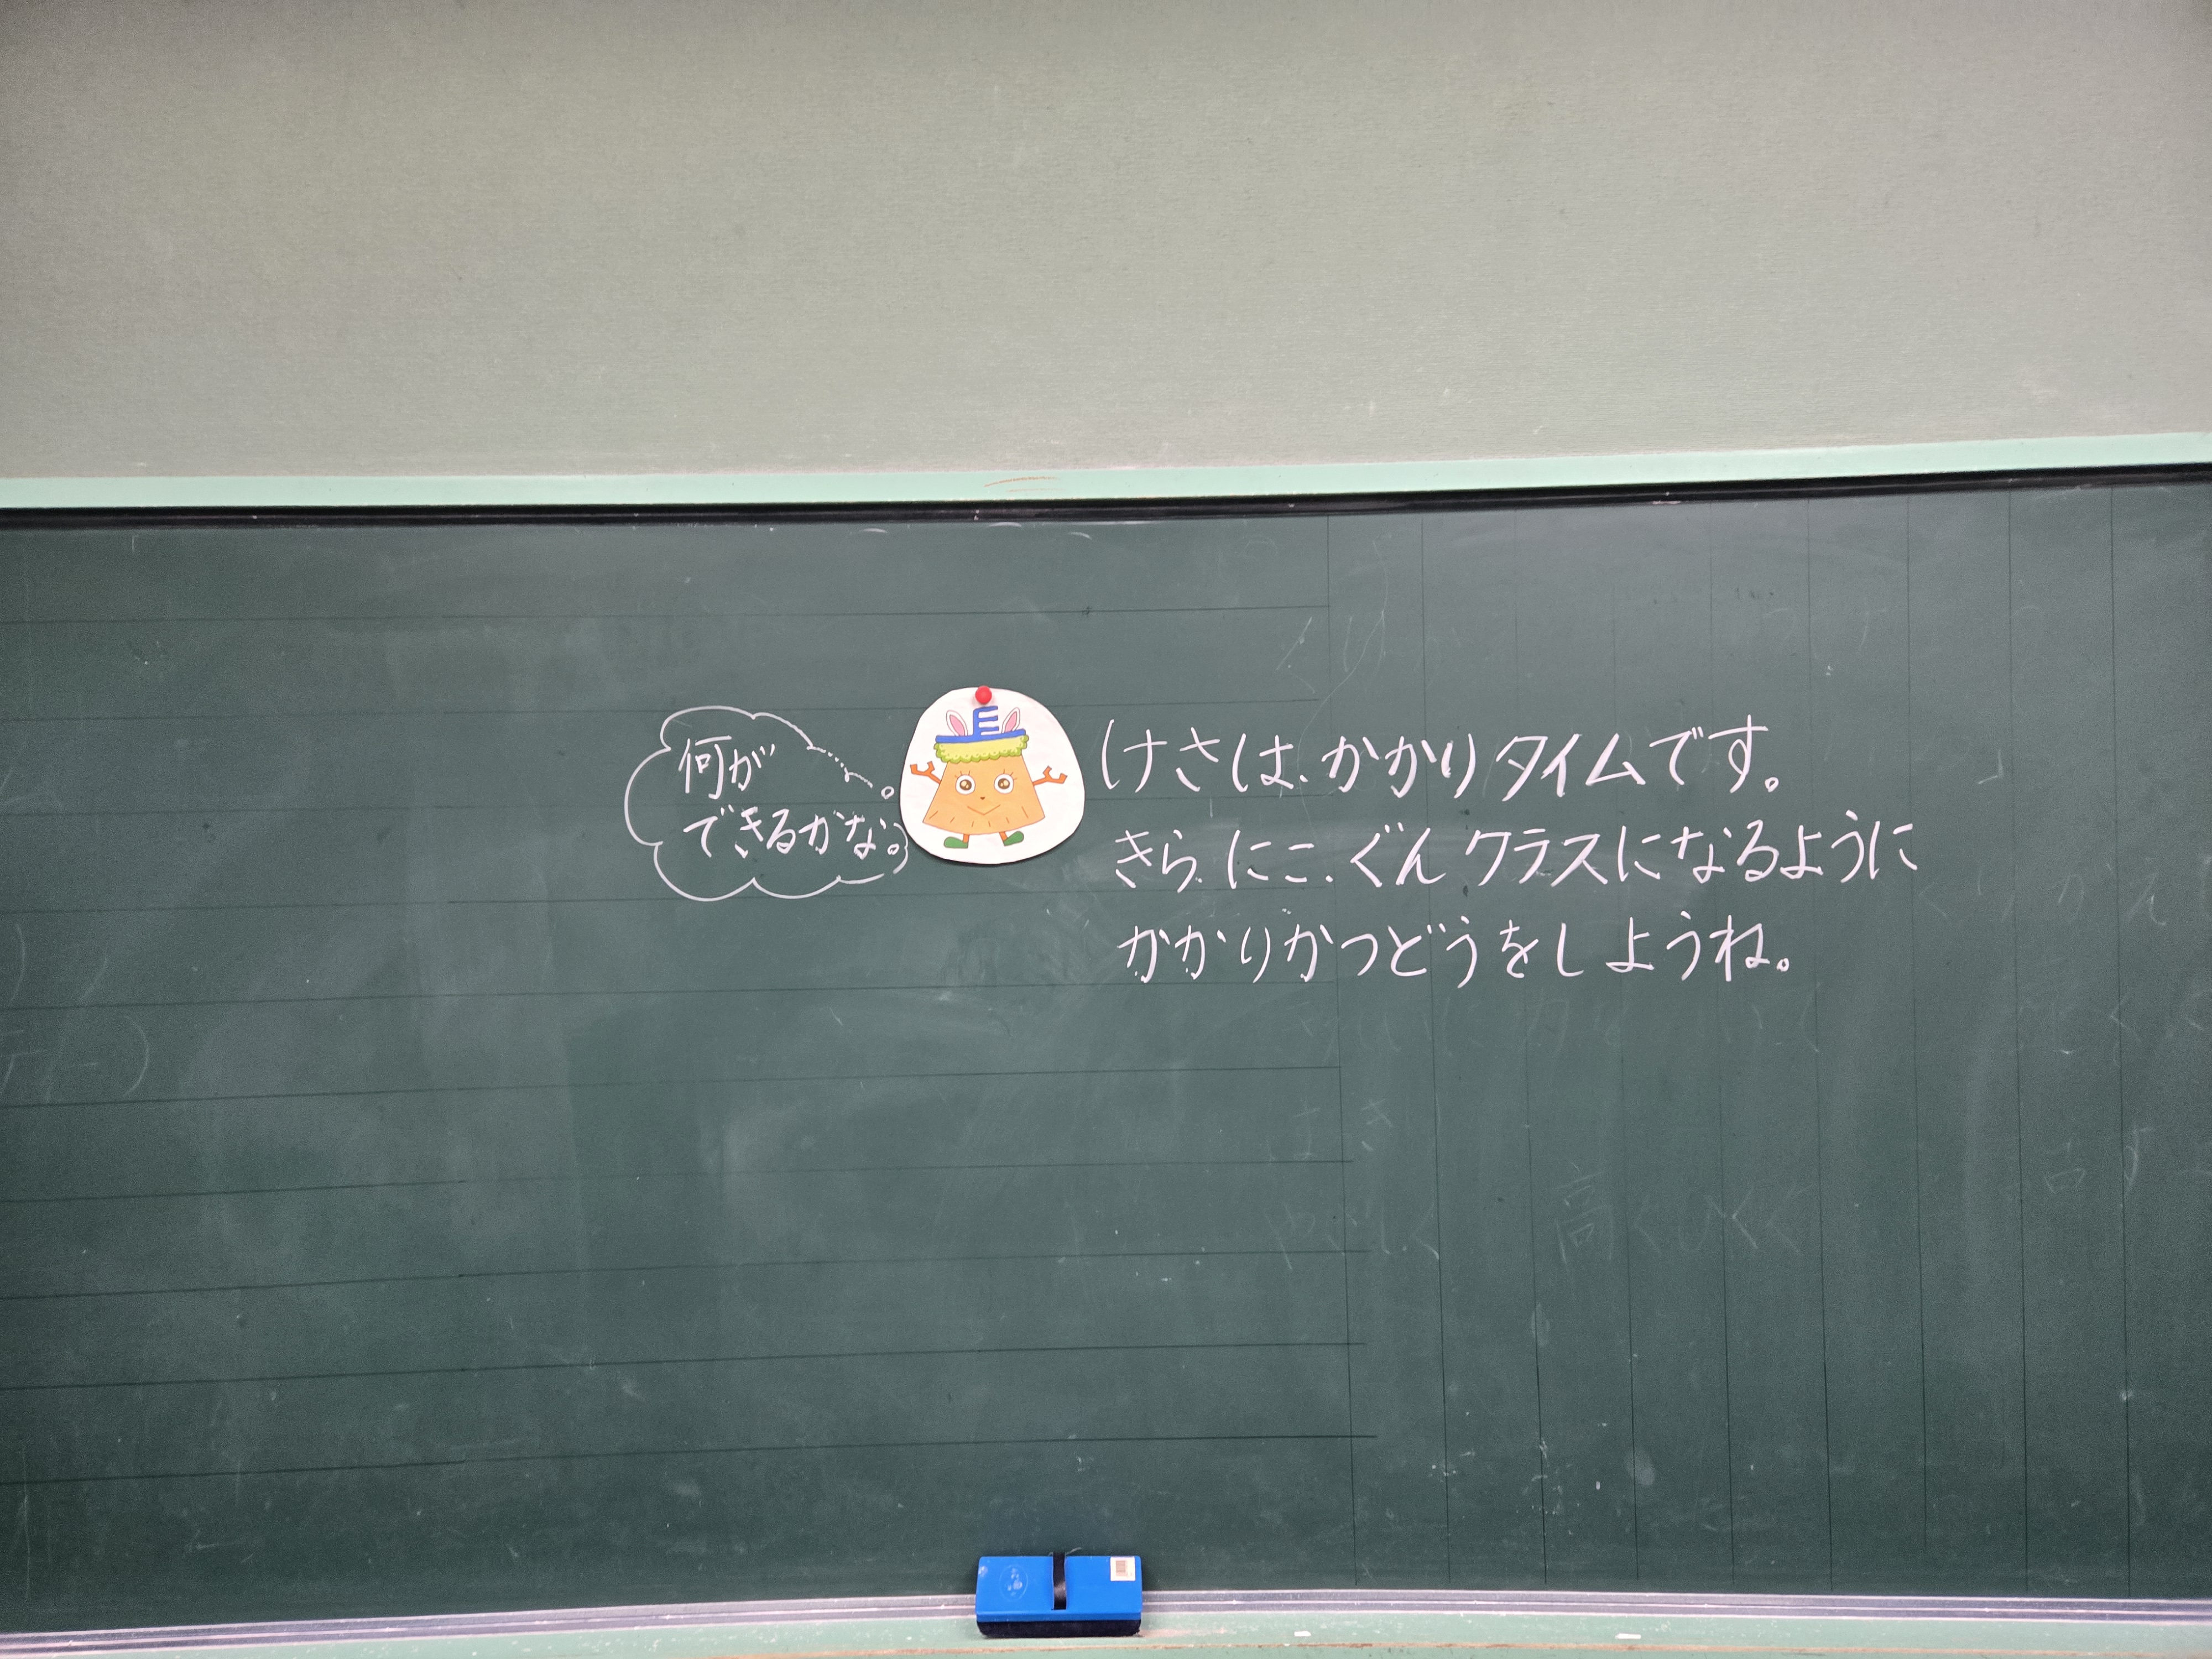 何が
できるかな。
けさは、かかりタイムです。
きら、にこ、ぐんクラスになるように
かかりかつどうをしようね。
高くひくく